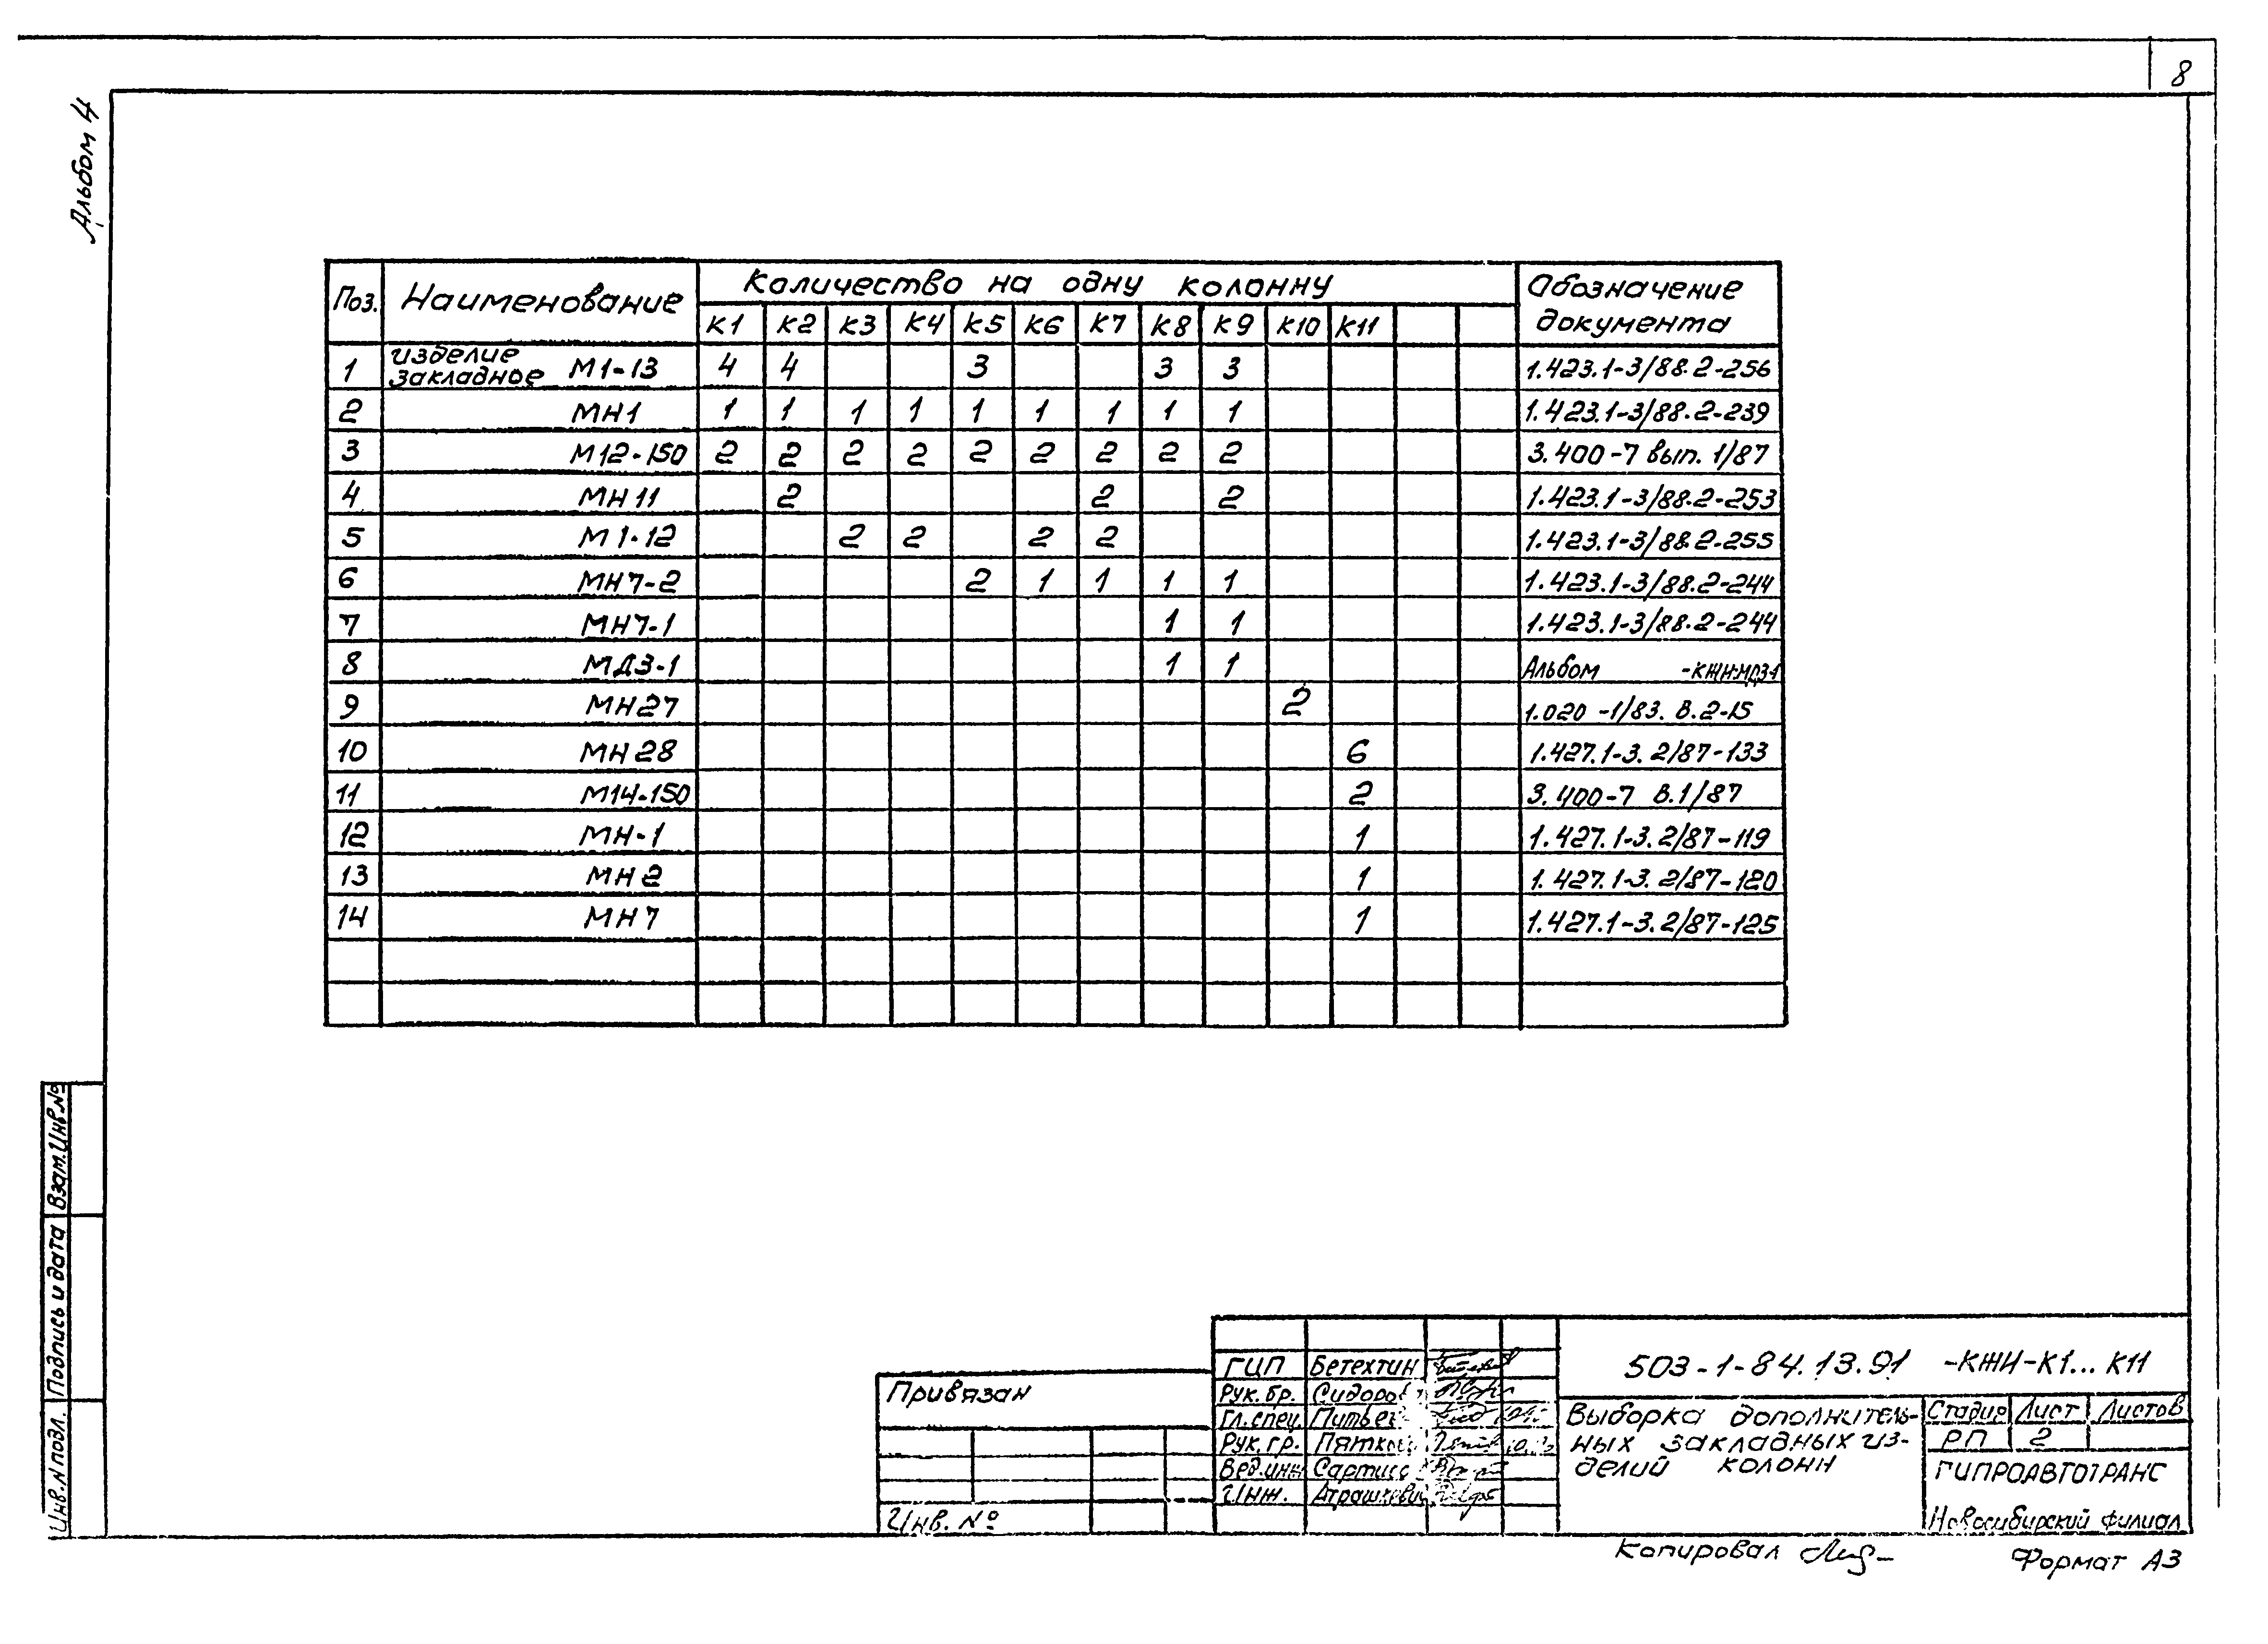 8
Альбом 4
Поз. Наименование Количество на одну колонну Обозначение документа
К1 К2 К3 К4 К5 К6 К7 К8 К9 К10 К11
1 изделие закладное М1-13 4 4 3 3 3 1.423.1-3/88.2-256
2 МН1 1 1 1 1 1 1 1 1 1 1.423.1-3/88.2-239
3 М12-150 2 2 2 2 2 2 2 2 2 3.400-7 вып. 1/87
4 МН11 2 2 2 1.423.1-3/88.2-253
5 М1-12 2 2 2 2 1.423.1-3/88.2-255
6 МН7-2 2 1 1 1 1 1.423.1-3/88.2-244
7 МН7-1 1 1 1.423.1-3/88.2-244
8 МД3-1 1 1 Альбом -КЖИ-МД3-1
9 МН27 2 1.020-1/83. В.2-15
10 МН28 6 1.427.1-3.2/87-133
11 М14-150 2 3.400-7 В.1/87
12 МН-1 1 1.427.1-3.2/87-119
13 МН2 1 1.427.1-3.2/87-120
14 МН7 1 1.427.1-3.2/87-125
Взам.Инв.№
Подпись и дата
Инв.N подл.
Привязан
Инв. №
ГИП Бетехтин
Рук.бр. Сидоров
Гл.спец.
Рук.гр.
Вед.инж
Инж. Атрашкевич
503-1-84.13.91 -КЖИ-К1...К11
Выборка дополнитель-
ных закладных из-
делий колонн
Стадия Лист Листов
РП 2
ГИПРОАВТОТРАНС
Новосибирский филиал
Копировал
Формат А3